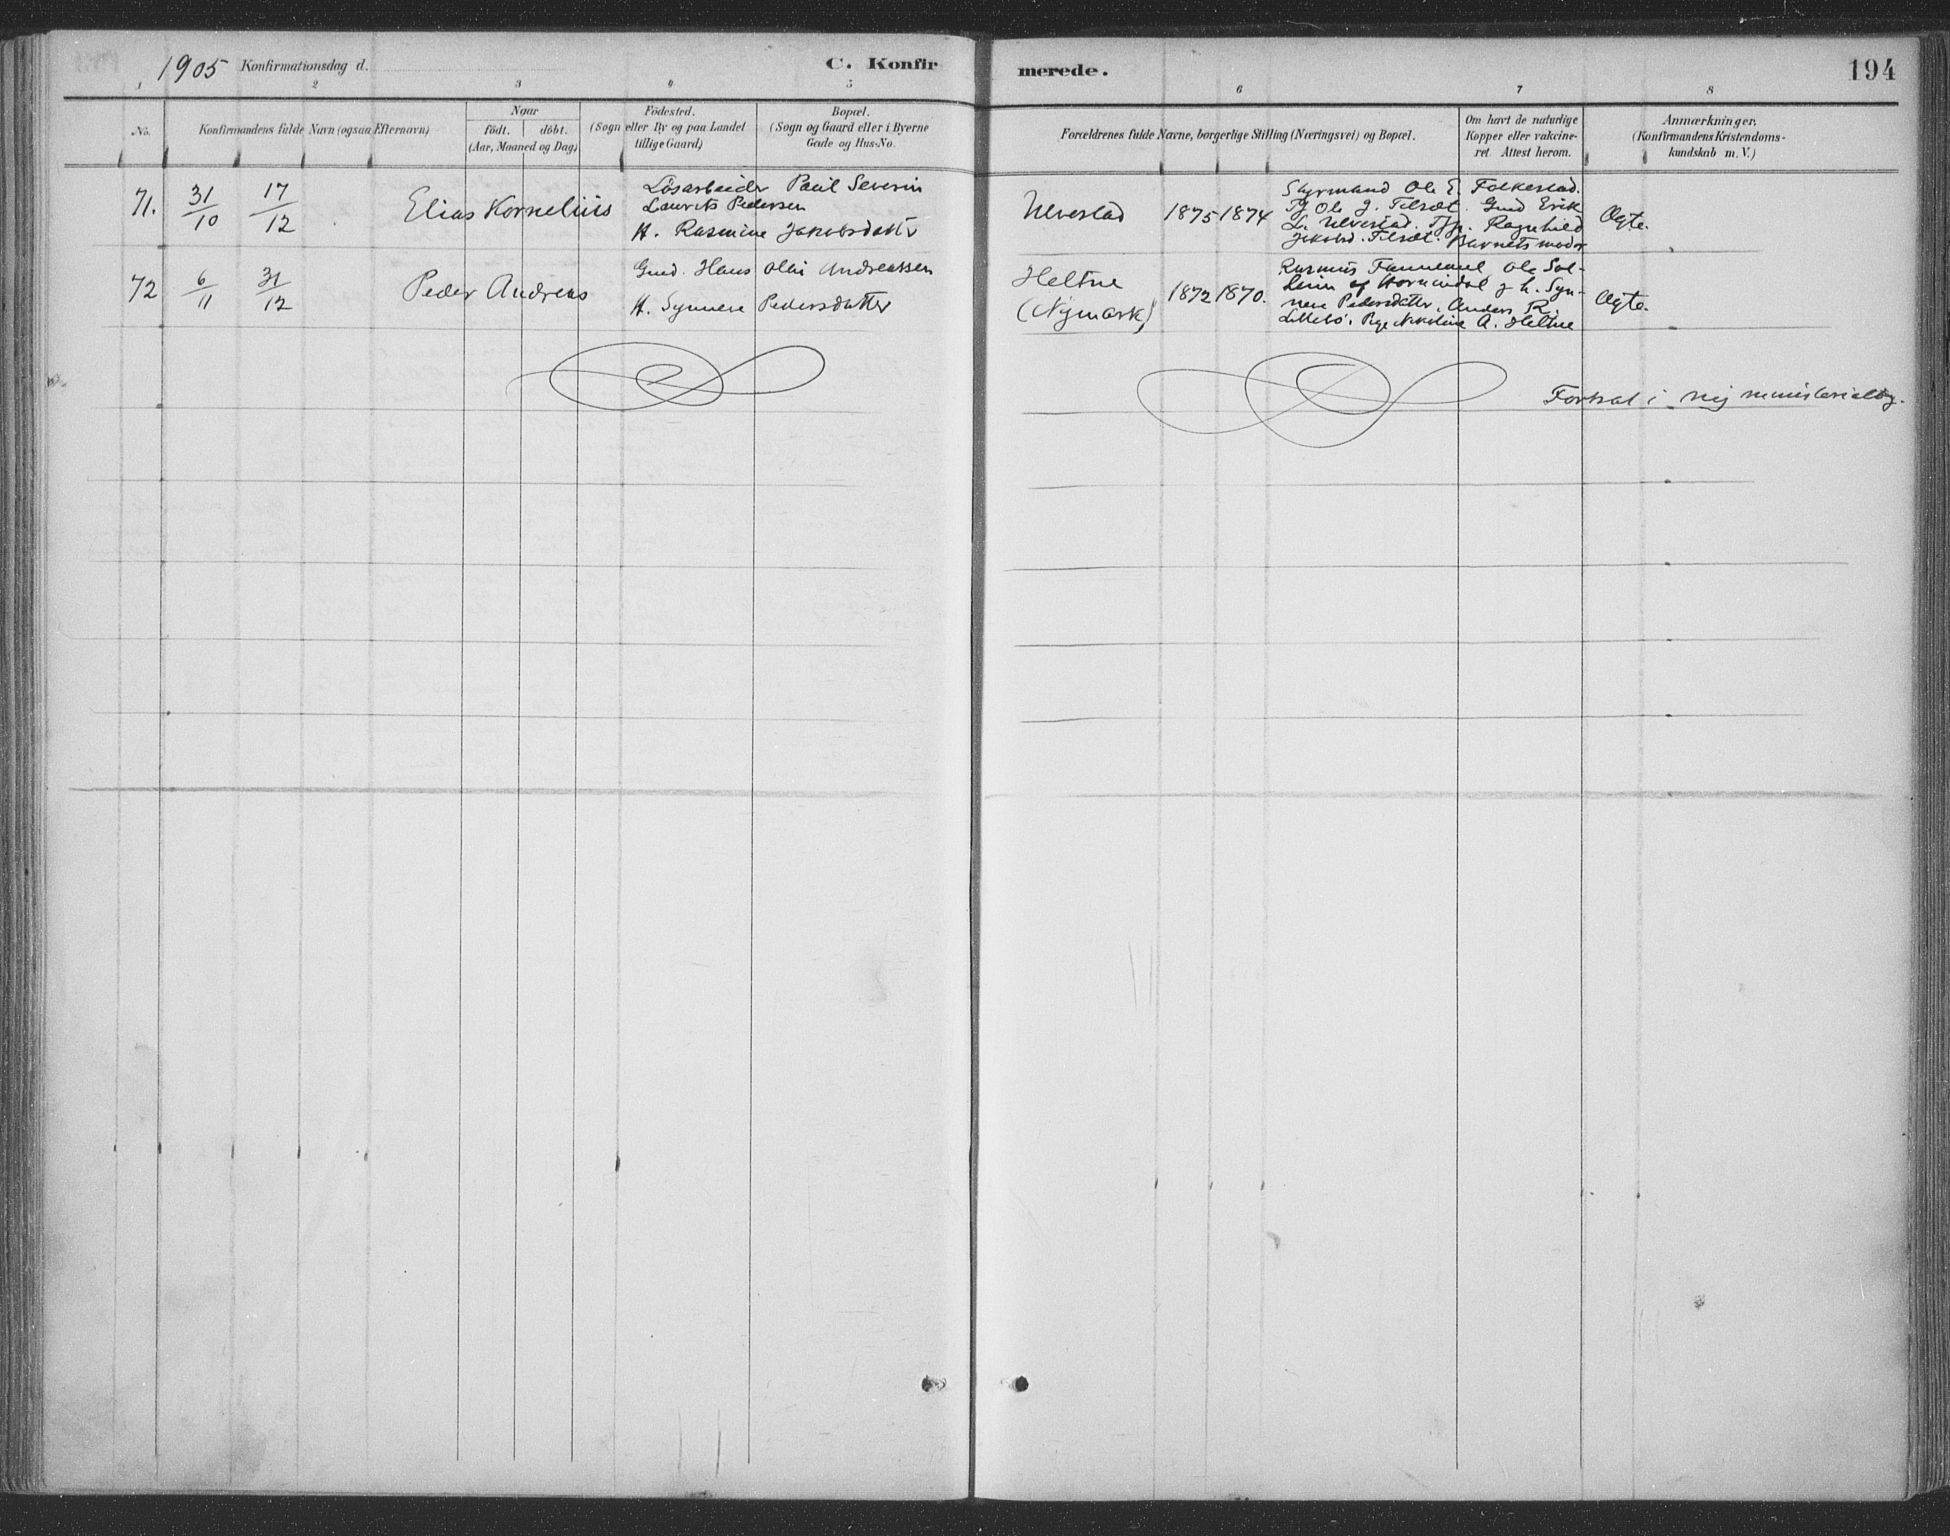 1905 Konfirmationsdag d. C. Konfirmerede. 194
1 2 3 4 5 6 7 8
No. Konfirmandens fulde Navn (ogsaa Efternavn)
Naar
födt. döbt.
(Aar, Maaned og Dag)
Födested.
(Sogn eller By og paa Landet
tillige Gaard)
Bopæl.
(Sogn og Gaard eller i Byerne
Gade og Hus-No.
Forældrenes fulde Navne, borgerlige Stilling (Næringsvei) og Bopæl.
Om havt de naturlige
Kopper eller vakcine-
ret. Attest herom.
Anmærkninger.
(Konfirmandens Kristendoms-
kundskab m. V.)
71. 31/10 17/12 Elias Kornelius
Lösarbeider Paul Severin
Laurits Pedersen
H. Rasmine Jakobsdatter
Ulvestad 1875 1874
Styrmand Ole E. Folkestad.
Ole J. Filsæt. Gmd Erik
L. Ulvestad. Ragnhild
Jakobsd. Filsæt. Barnets moder
Ægte.
72 6/11 31/12 Peder Andreas
Gmd. Hans Andreassen
H. Synnere Pedersdatter
Heltne
(Nymark) 1872 1870.
Rasmus Ole Sol-
Hornindal g. h. Syn-
nere Pedersdatter. Anders R.
Littebö. Pige Nikoline A. Heltne
Ægte.
Fortsat i ny ministerialbog.